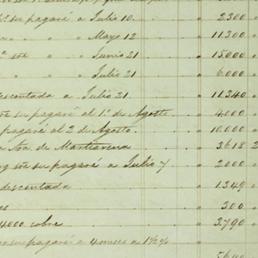 su pagaré a Julio 10 " 2300
" Mayo 12 " 11300
" sre Junio 21 " 15000
" " Julio 21 " 6000
descontada a Julio 21 " 11340
sre su pagaré al 1º de Agosto " 4000
pagaré al 2 de Agosto " 10,000
3618
sre su pagaré a Julio 7 " 2000
descontada " 1349
" 300
4000 cobre " 3790
su pagaré a 4 meses a 1½ %